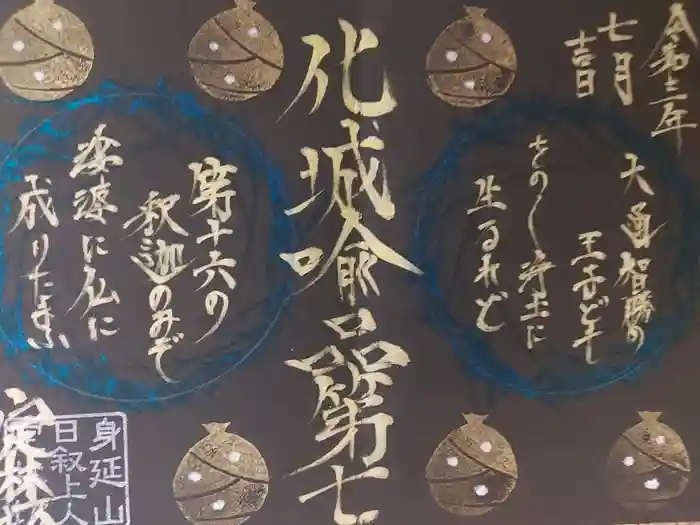 令和三年
七月
吉日
大通智勝の
王子ども
をの〱浄土に
生るれど
化城喩品第七
第十六の
釈迦のみぞ
娑婆に仏に
成りたまふ
身延山
日叙上人